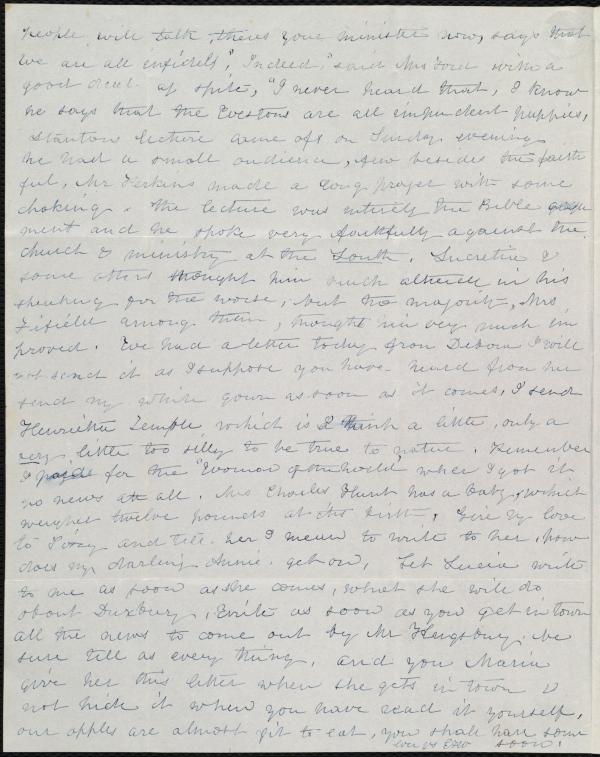 People will talk, theres your minister now, says that
we are all infidels," Indeed," said Mrs Ford with a
good deal of spite, "I never heard that, I know
he says that the Westons are all impudent puppies,
Stantons lecture came off on Sunday evening
he had a small audience, few besides the faith
ful, Mr Perkins made a long prayer with some
choking. The lecture was entirely the Bible argu
ment and he spoke very faithfully against the
church & ministry at the South. Lucretia &
some others thought him much altered in his
speaking for the worse, but the majority, Mrs
Fifield among them, thought him very much im
proved. We had a letter today from Debora I will
not send it as I suppose you have heard from her
send my white gown as soon as it comes, I send
Henrietta Temple, which is I think a little, only a
very little too silly to be true to nature. Remember
I for the "Woman of the World when I got it
no news at all. Mrs Charles Hunt has a baby, which
weighed twelve pounds at its birth, Give my love
to and tell her I mean to write to her, how
does my darling Annie get on, Let Lucia write
to me as soon as she comes, what she will do
about Duxbury, Write as soon as you get in town
all the news to come out by Mr Kingsbury, be
sure tell us every thing, and you Maria
give her this letter when she gets in town &
not hide it when you have read it yourself,
our apples are almost fit to eat, you shall have some
soon.